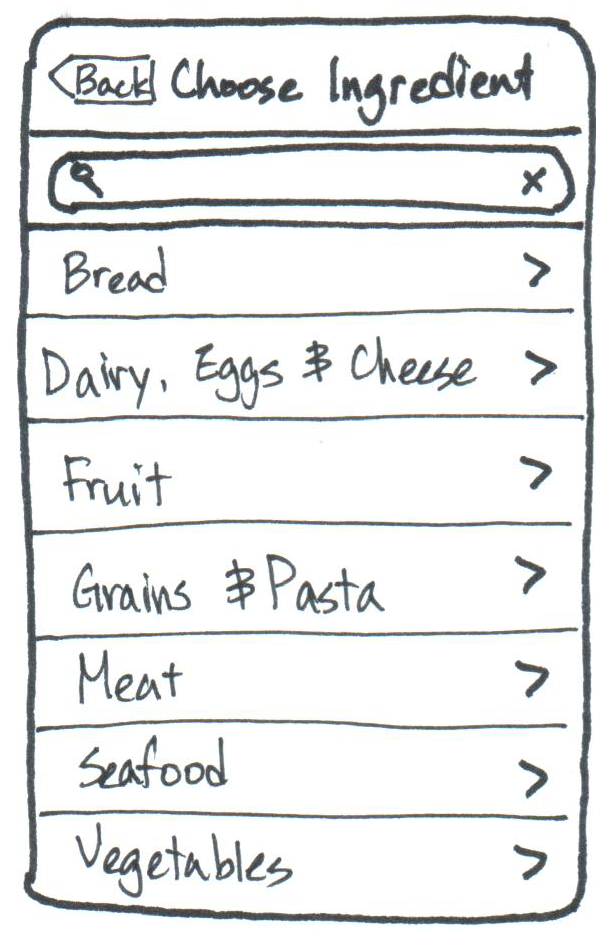 Back Choose Ingredient
x
Bread >
Dairy, Eggs & Cheese >
Fruit >
Grains & Pasta >
Meat >
Seafood >
Vegetables >